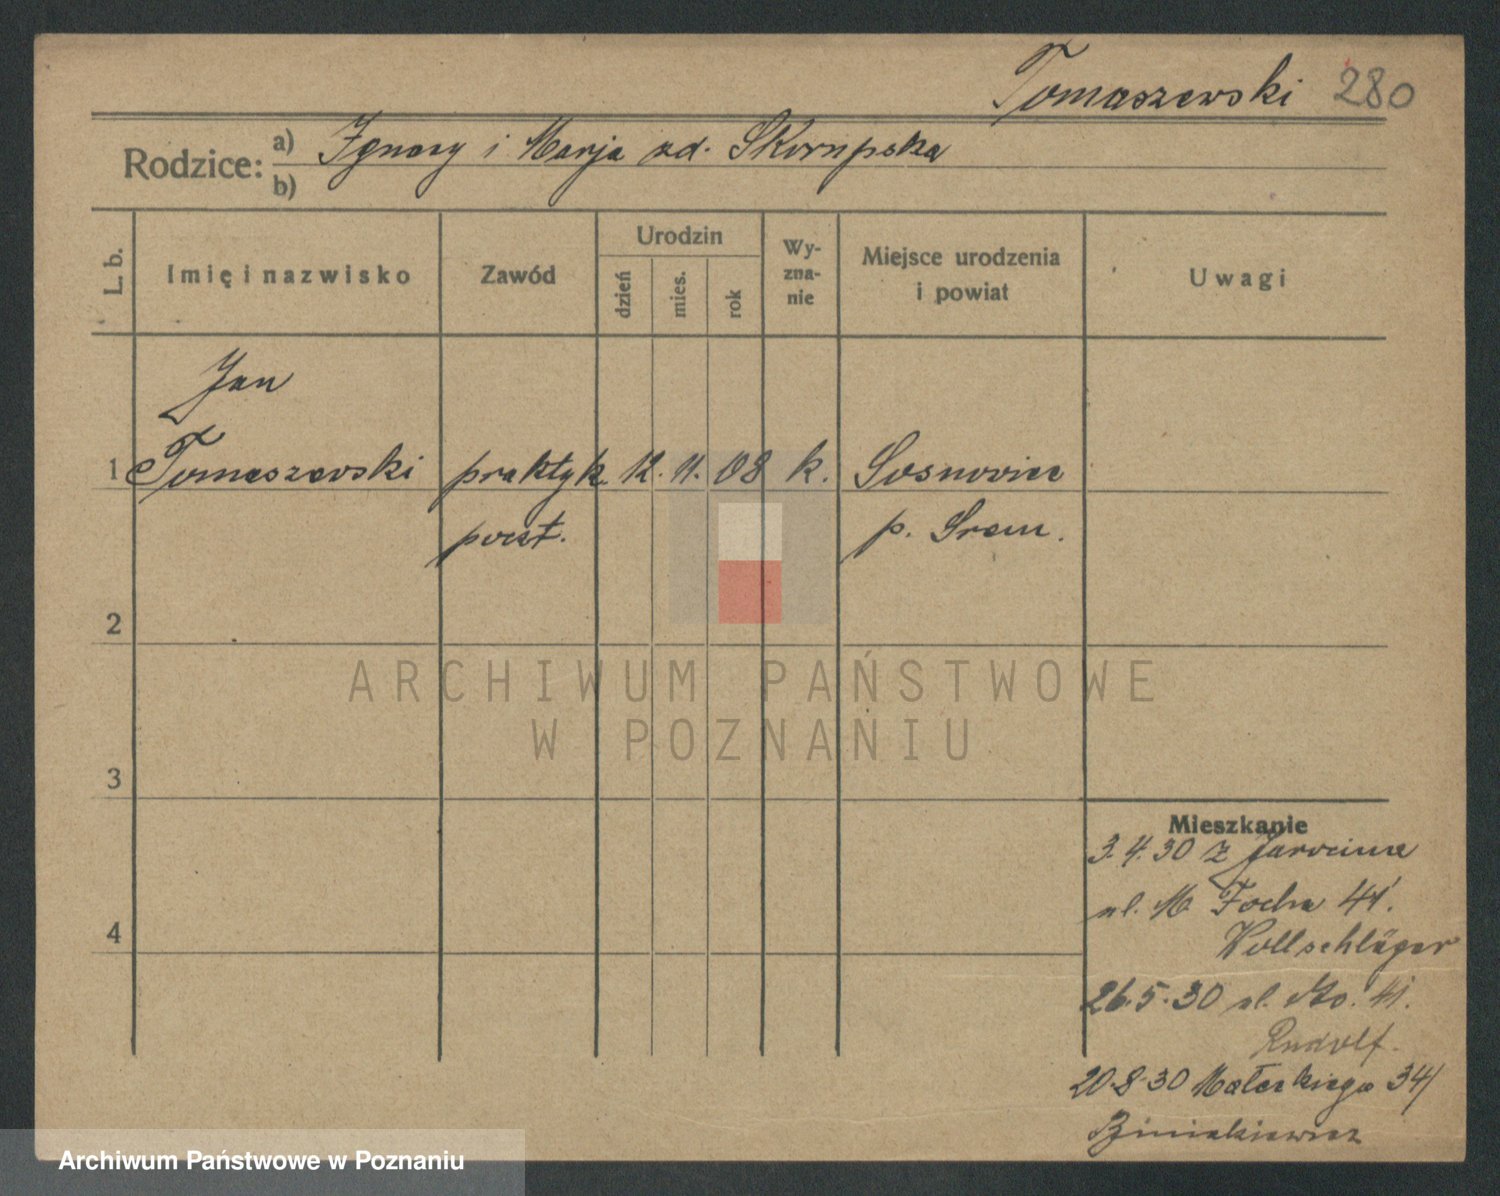 Tomaszewski 280
Rodzice: a) Ignacy i Marja zd. Skorupska
b)
L. b. Imię i nazwisko Zawód Urodzin dzień mies. rok Wy-zna-nie Miejsce urodzenia i powiat Uwagi
Jan
1 Tomaszewski praktyk. 12. 11. 08 k. Sosnowiec
poczt. p. Śrem.
2
ARCHIWUM PAŃSTWOWE
W POZNANIU
3
Mieszkanie
3.4.30 z Jarocina
ul. M. Focha 41.
4
Wollschläger
26.5.30 ul. 41.
Rudolf.
20.8.30 Małeckiego 34/
Archiwum Państwowe w Poznaniu